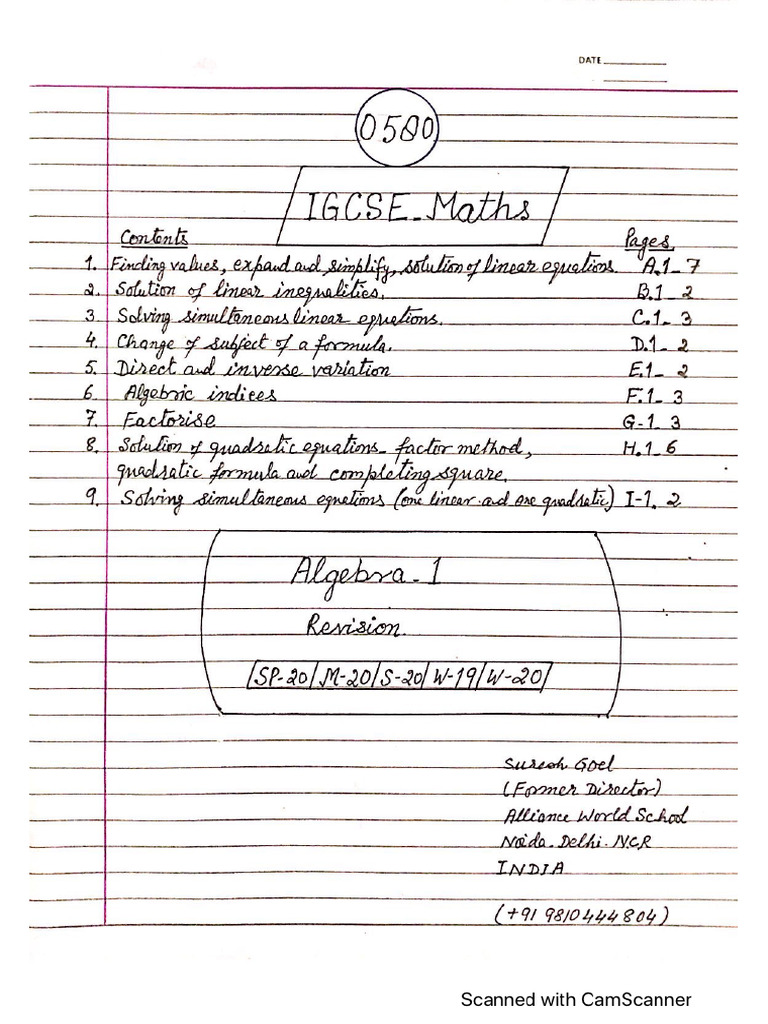 DATE
0580
IGCSE-Maths
Contents Pages
1. Finding values, expand and simplify, solution of linear equations. A.1-7
2. Solution of linear inequalities. B.1-2
3. Solving simultaneous linear equations. C.1-3
4. Change of subject of a formula. D.1-2
5. Direct and inverse variation E.1-2
6. Algebric indices F.1-3
7. Factorise G-1.3
8. Solution of quadratic equations- factor method, H.1-6
quadratic formula and completing square.
9. Solving simultaneous equations (one linear and one quadratic) I-1.2
Algebra-1
Revision.
SP-20/M-20/S-20/W-19/W-20
Suresh Goel
(Former Director)
Alliance World School
Noida-Delhi-NCR
INDIA
(+91 9810444804)
Scanned with CamScanner